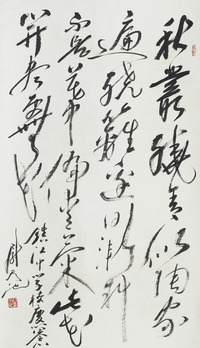 秋叢繞舍似陶家
遍繞籬邊日漸斜
不是花中偏愛菊此花
開盡更無花
學校慶